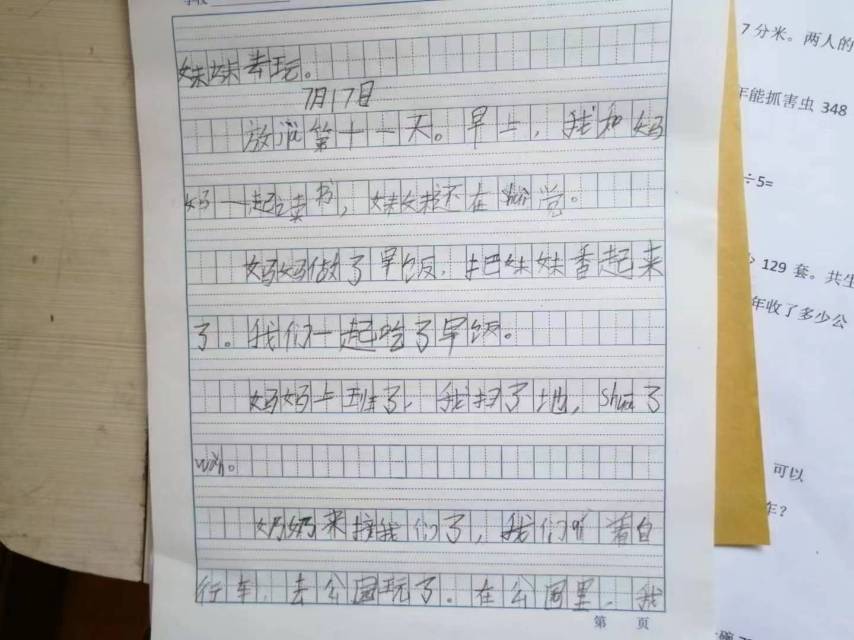 学校
妹妹去玩。
7月17日
放假第十一天。早上，我和妈
妈一起读书，妹妹还在shuì觉。
妈妈做了早饭，把妹妹香起来
了。我们一起吃了早饭。
妈妈上班了，我扫了地，shuā了
wǎn。
奶奶来接我们了，我们骑着自
行车，去公园玩了。在公园里，我
第 页
7分米。两人的
年能抓害虫 348
÷5=
129 套。共生
年收了多少公
可以
年？